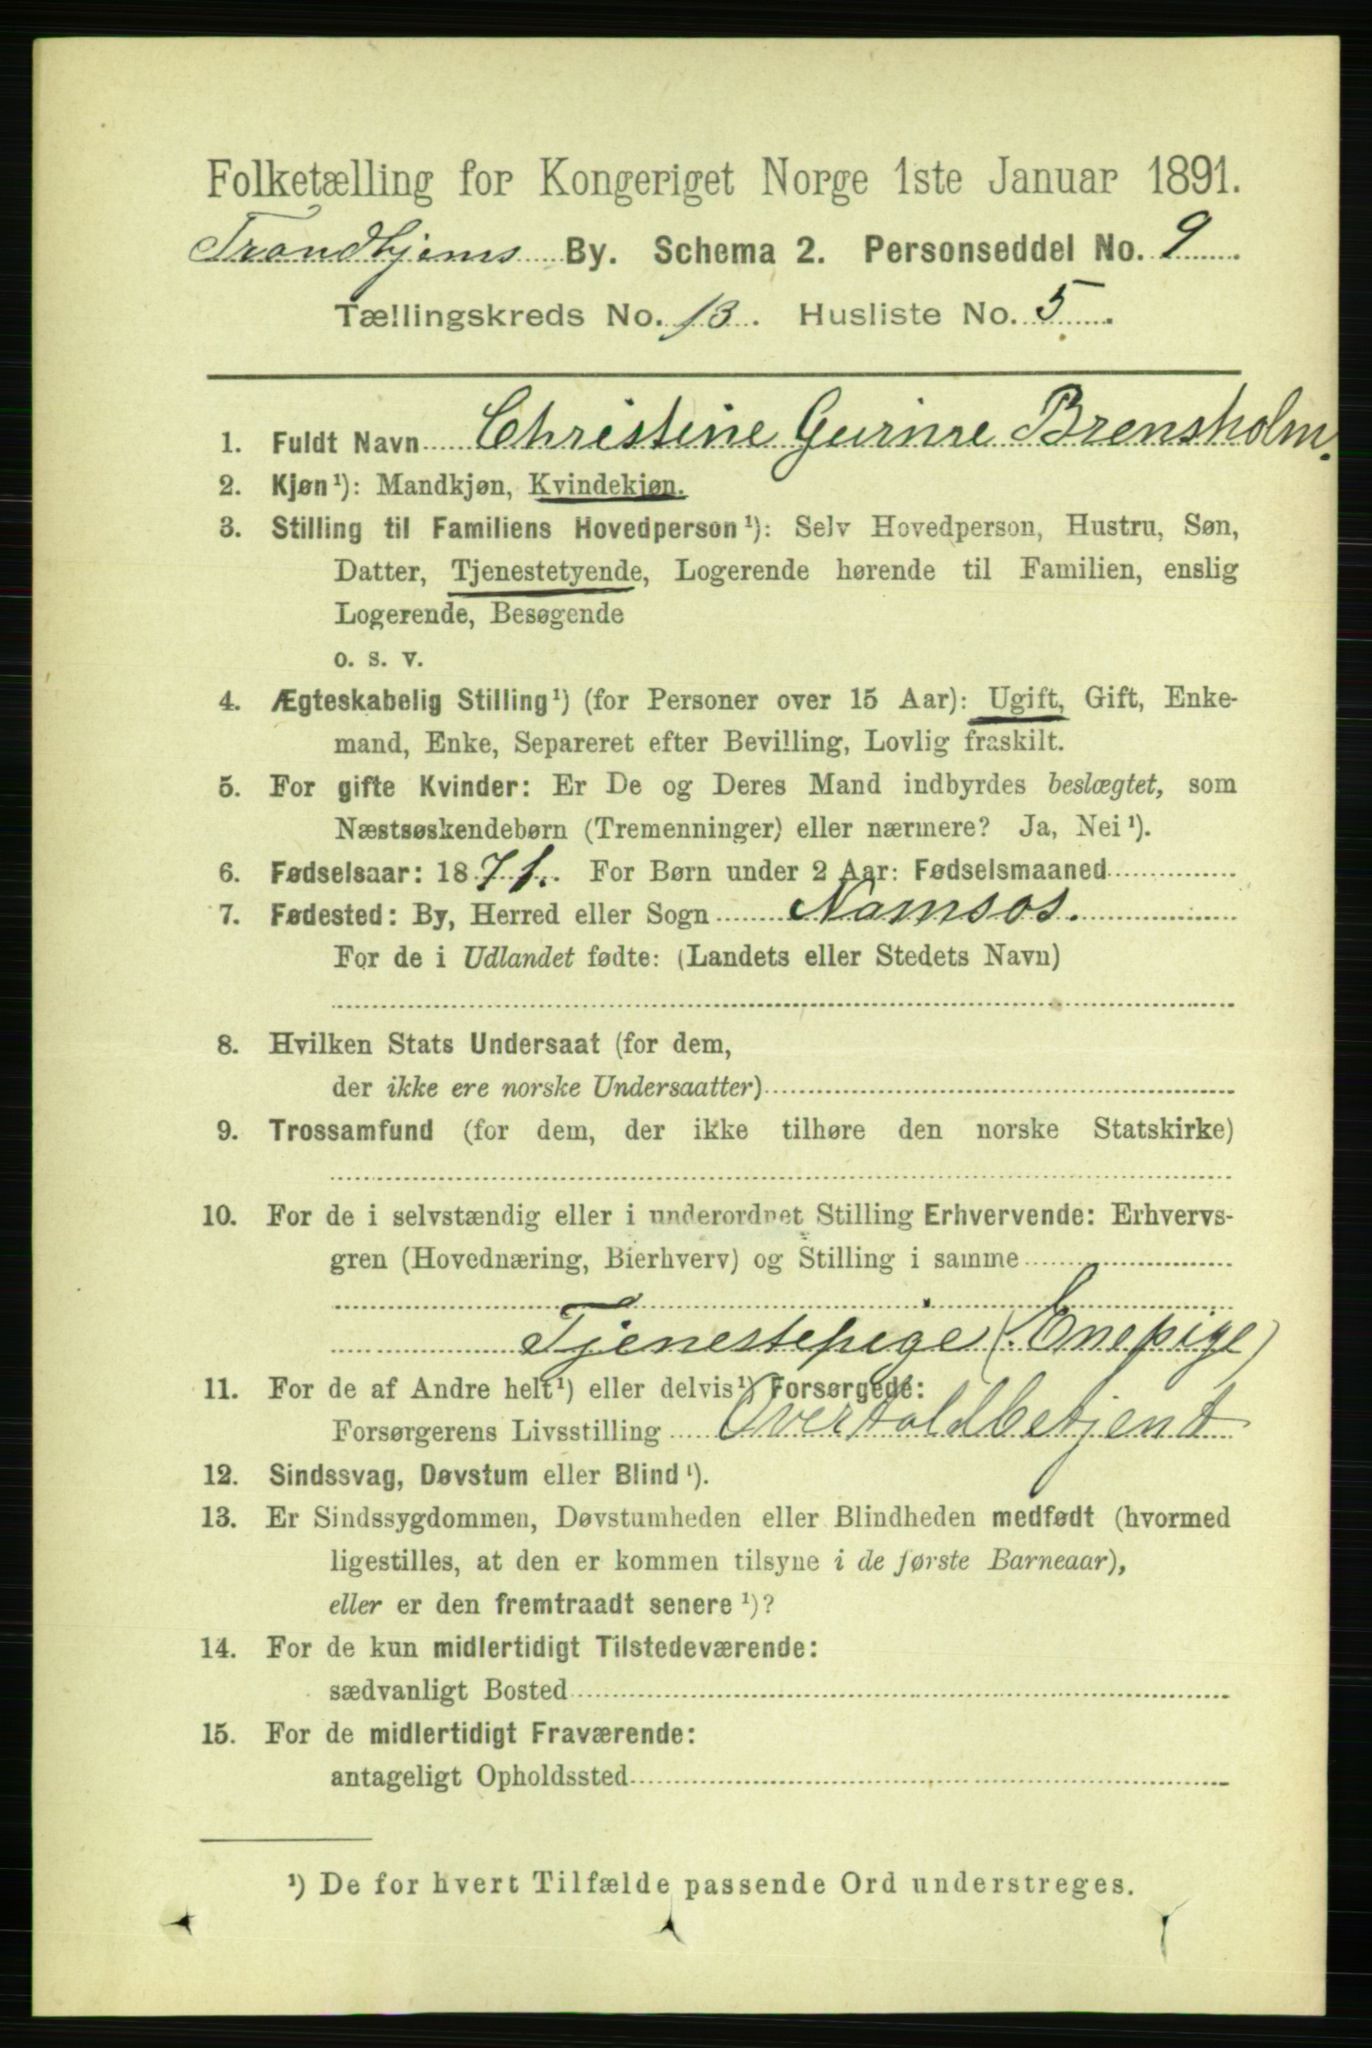 Folketælling for Kongeriget Norge 1ste Januar 1891.
Trondhjems By. Schema 2. Personseddel No. 9
Tællingskreds No. 13. Husliste No. 5.
1. Fuldt Navn Christine Gurine Brensholm.
2. Kjøn¹): Mandkjøn, Kvindekjøn.
3. Stilling til Familiens Hovedperson¹): Selv Hovedperson, Hustru, Søn,
Datter, Tjenestetyende, Logerende hørende til Familien, enslig
Logerende, Besøgende
o. s. v.
4. Ægteskabelig Stilling¹) (for Personer over 15 Aar): Ugift, Gift, Enke-
mand, Enke, Separeret efter Bevilling, Lovlig fraskilt.
5. For gifte Kvinder: Er De og Deres Mand indbyrdes beslægtet, som
Næstsøskendebørn (Tremenninger) eller nærmere? Ja, Nei¹).
6. Fødselsaar: 1871. For Børn under 2 Aar: Fødselsmaaned
7. Fødested: By, Herred eller Sogn Namsos.
For de i Udlandet fødte: (Landets eller Stedets Navn)
8. Hvilken Stats Undersaat (for dem,
der ikke ere norske Undersaatter)
9. Trossamfund (for dem, der ikke tilhøre den norske Statskirke)
10. For de i selvstændig eller i underordnet Stilling Erhvervende: Erhvervs-
gren (Hovednæring, Bierhverv) og Stilling i samme
Tjenestepige (Enepige)
11. For de af Andre helt¹) eller delvis¹) Forsørgede:
Forsørgerens Livsstilling Overtoldbetjent
12. Sindssvag, Døvstum eller Blind¹).
13. Er Sindssygdommen, Døvstumheden eller Blindheden medfødt (hvormed
ligestilles, at den er kommen tilsyne i de første Barneaar),
eller er den fremtraadt senere¹)?
14. For de kun midlertidigt Tilstedeværende:
sædvanligt Bosted
15. For de midlertidigt Fraværende:
antageligt Opholdssted
¹) De for hvert Tilfælde passende Ord understreges.